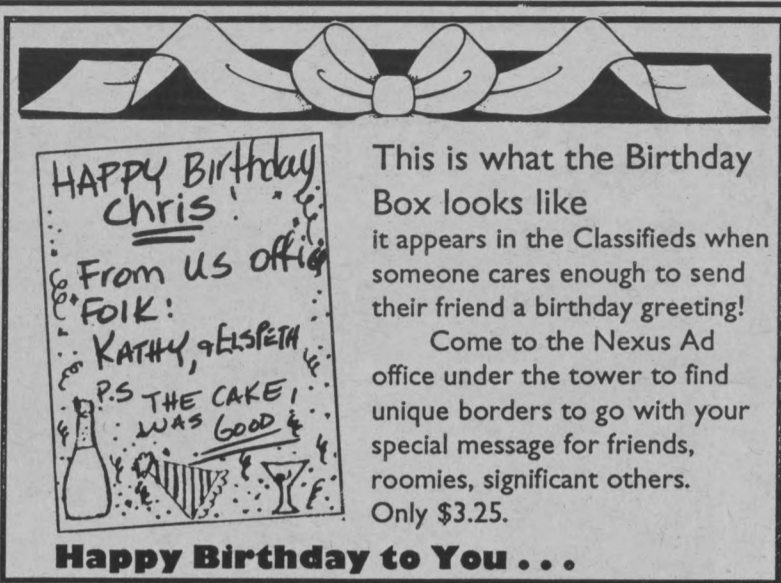 HAPPY Birthday
Chris!
From us office
FOLK:
KATHY, & ELSPETH
P.S THE CAKE,
WAS GOOD
This is what the Birthday
Box looks like
it appears in the Classifieds when
someone cares enough to send
their friend a birthday greeting!
Come to the Nexus Ad
office under the tower to find
unique borders to go with your
special message for friends,
roomies, significant others.
Only $3.25.
Happy Birthday to You . . .